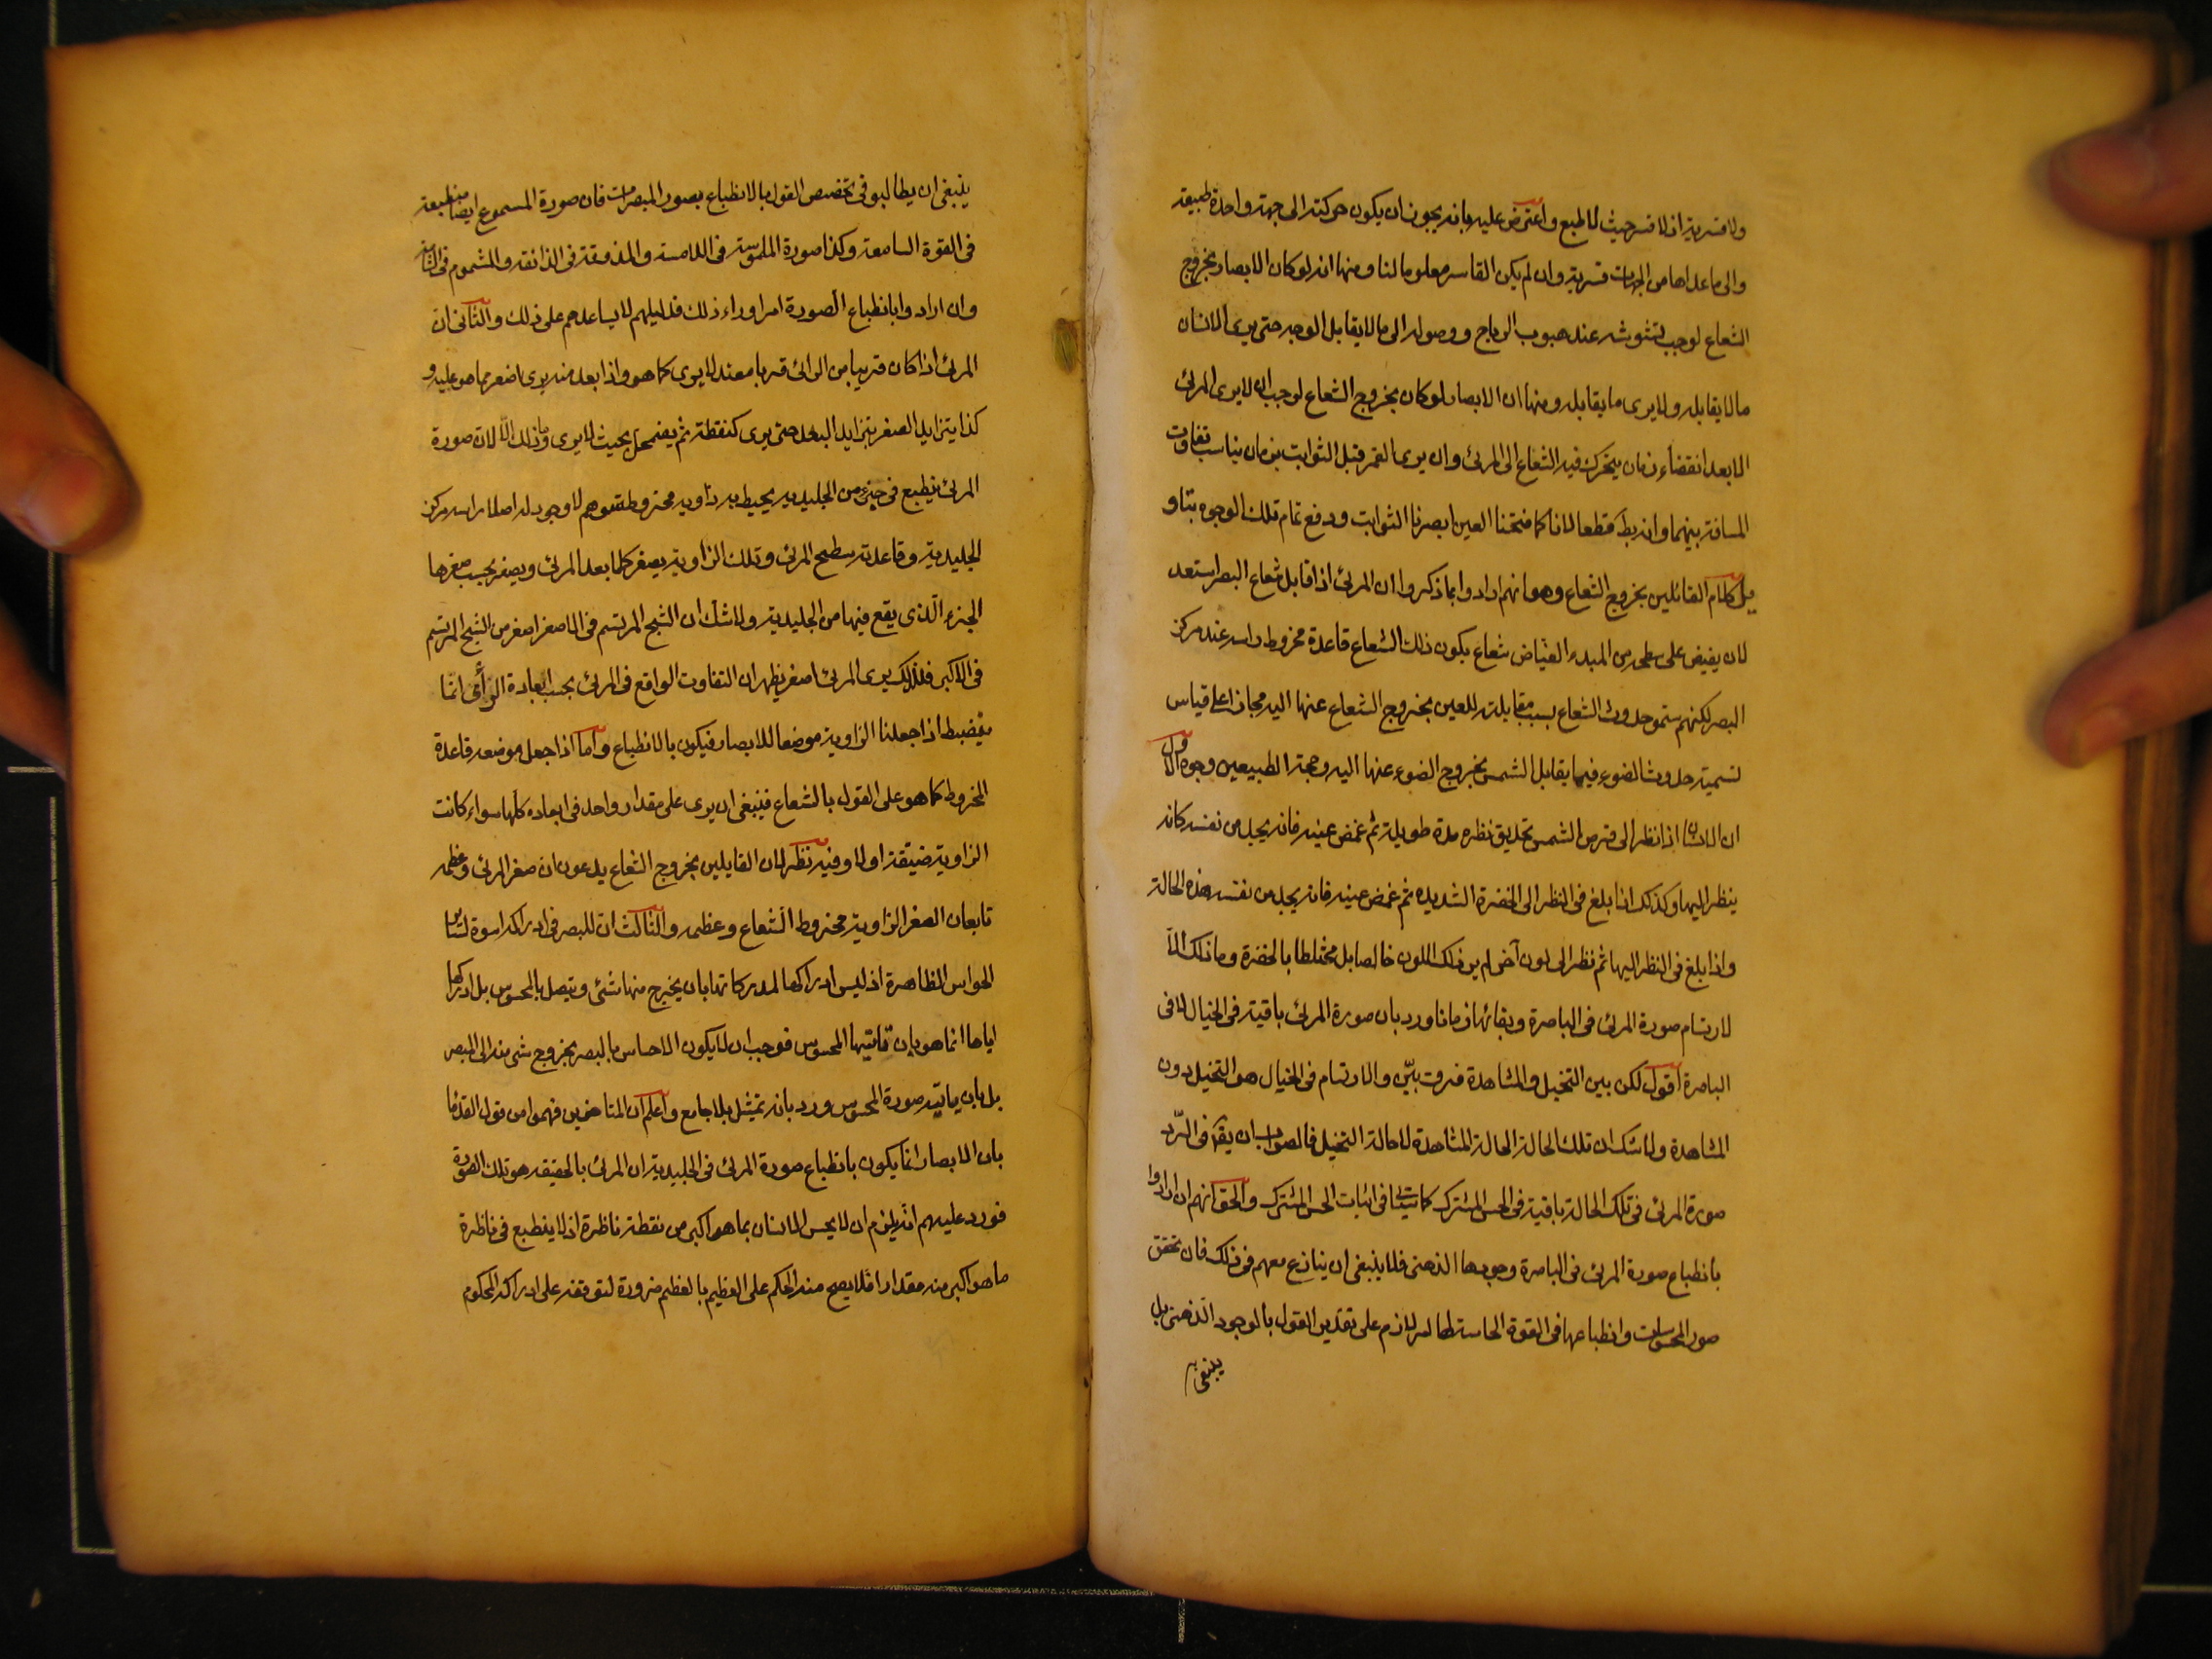 ولا قسرية اذ لا قسر حيث لا طبع واعترض عليه بانه يجوز ان يكون حركته الى جهة واحدة طبيعية
والى ما عداها من الجهات قسرية وان لم يكن القاسر معلوما لنا ومنها انه لو كان الابصار بخروج
الشعاع لوجب تشوشه عند هبوب الرياح ووصوله الى ما لا يقابل الوجه حتى يرى الانسان
ما لا يقابله ولا يرى ما يقابله ومنها ان الابصار لو كان بخروج الشعاع لوجب ان لا يرى المرئ
الا بعد انقضاء زمان يتحرك فيه الشعاع الى المرئ وان يرى القمر قبل الثوابت بزمان يناسب تفاوت
المسافة بينهما وانه بط قطعا لانا كما فتحنا العين ابصرنا الثوابت ودفع تمام تلك الوجوه بتاو
يل كلام القائلين بخروج الشعاع وهو انهم ارادوا بما ذكروا ان المرئ اذا قابل شعاع البصر استعد
لان يفيض على سطحه من المبدء الفياض شعاع يكون ذلك الشعاع قاعدة مخروط راسه عند مركز
البصر لكنهم سموا حدوث الشعاع بسبب مقابلته للعين بخروج الشعاع عنها اليه مجازا على قياس
تسمية حدوث الضوء فيما يقابل الشمس بخروج الضوء عنها اليه وحجة الطبيعيين وجوه الاول
ان الانسان اذا نظر الى قرص الشمس بتحديق نظره مدة طويلة ثم غمض عينيه فانه يجد من نفسه كانه
ينظر اليها وكذلك اذا بلغ في النظر الى الخضرة الشديدة ثم غمض عينيه فانه يجد من نفسه هذه الحالة
واذا بلغ في النظر اليها ثم نظر الى لون آخر لم ير ذلك اللون خالصا بل مختلطا بالخضرة وما ذلك الا
لارتسام صورة المرئ في الباصرة وبقائها زمانا ورد بان صورة المرئ باقية في الخيال لا في
الباصرة اقول لكن بين التخيل والمشاهدة فرق بيّن والارتسام في الخيال هو التخيل دون
المشاهدة ولا شك ان تلك الحالة الحالة المشاهدة لا حالة التخيل فالصواب ان يقه في الرّد
صورة المرئ في تلك الحالة باقية في الحس المشترك كما سيأتي في اثبات الحس المشترك والحق انهم ان ارادوا
بانطباع صورة المرئ في الباصرة وجودها الذهني فلا ينبغي ان ينازع معهم في ذلك فان تحقق
صور المحسوسات وانطباعها في القوة الحاسة لها امر لازم على تقدير القول بالوجود الذهني بل
ينبغي
ينبغي ان يطالبوا في تخصيص القول بالانطباع بصور المبصرات فان صورة المسموع ايضا منطبعة
في القوة السامعة وكذا صورة الملموسة في اللامسة والمذوقة في الذائقة والمشموم في الشامة
وان ارادوا بانطباع الصورة امرا وراء ذلك فدليلهم لا يساعدهم على ذلك والثاني ان
المرئ اذا كان قريبا من الرائى قربا معتدلا يرى كما هو واذا بعد منه يرى اصغر مما هو عليه و
كذا يتزايد الصغر بتزايد البعد حتى يرى كنقطة ثم يضمحل بحيث لا يرى وما ذلك الا لان صورة
المرئ ينطبع في جزء من الجليدية يحيط به زاوية مخروط متوهم لا وجود له اصلا راسه مركز
الجليدية وقاعدته سطح المرئ وتلك الزاوية يصغر كلما بعد المرئ ويصغر بحسب صغرها
الجزء الّذى يقع فيها من الجليدية ولا شك ان الشبح المرتسم في الاصغر اصغر من الشبح المرتسم
في الاكبر فلذلك يرى المرئ اصغر فظهر ان التفاوت الواقع في المرئ بحسب ابعاده الرائى انما
ينضبط اذا جعلنا الزاوية موضعا للابصار فيكون بالانطباع واما اذا جعل موضعه قاعدة
المخروط كما هو على القول بالشعاع فينبغي ان يرى على مقدار واحد في ابعاده كلها سواء كانت
الزاوية ضيقة اولا وفيه نظر لان القايلين بخروج الشعاع يدعون ان صغر المرئ وعظمه
تابعان لصغر الزاوية مخروط الشعاع وعظمه والثالث ان للبصر في ادراكه اسوة لساير
الحواس الظاهرة اذ ليس ادراكها لمدركاتها بان يخرج منها شئ ويتصل بالمحسوس بل ادراكها
اياها انما هو بان تاتيها المحسوس فوجب ان لا يكون الاحساس بالبصر بخروج شي منه الى المبصر
بل بان ياتيه صورة المحسوس ورد بانه تمثيل بلا جامع واعلم ان المتاخرين فهموا من قول القدما
بان الابصار انما يكون بانطباع صورة المرئ في الجليدية ان المرئ بالحقيقة هو تلك الصورة
فورد عليهم انه يلزم ان لا يحس الانسان بما هو اكبر من نقطة ناظرة اذ لا ينطبع في ناظرة
ما هو اكبر منه مقدارا فلا يصح منه الحكم على العظيم بالعظم ضرورة لتوقفه على ادراك المحكوم